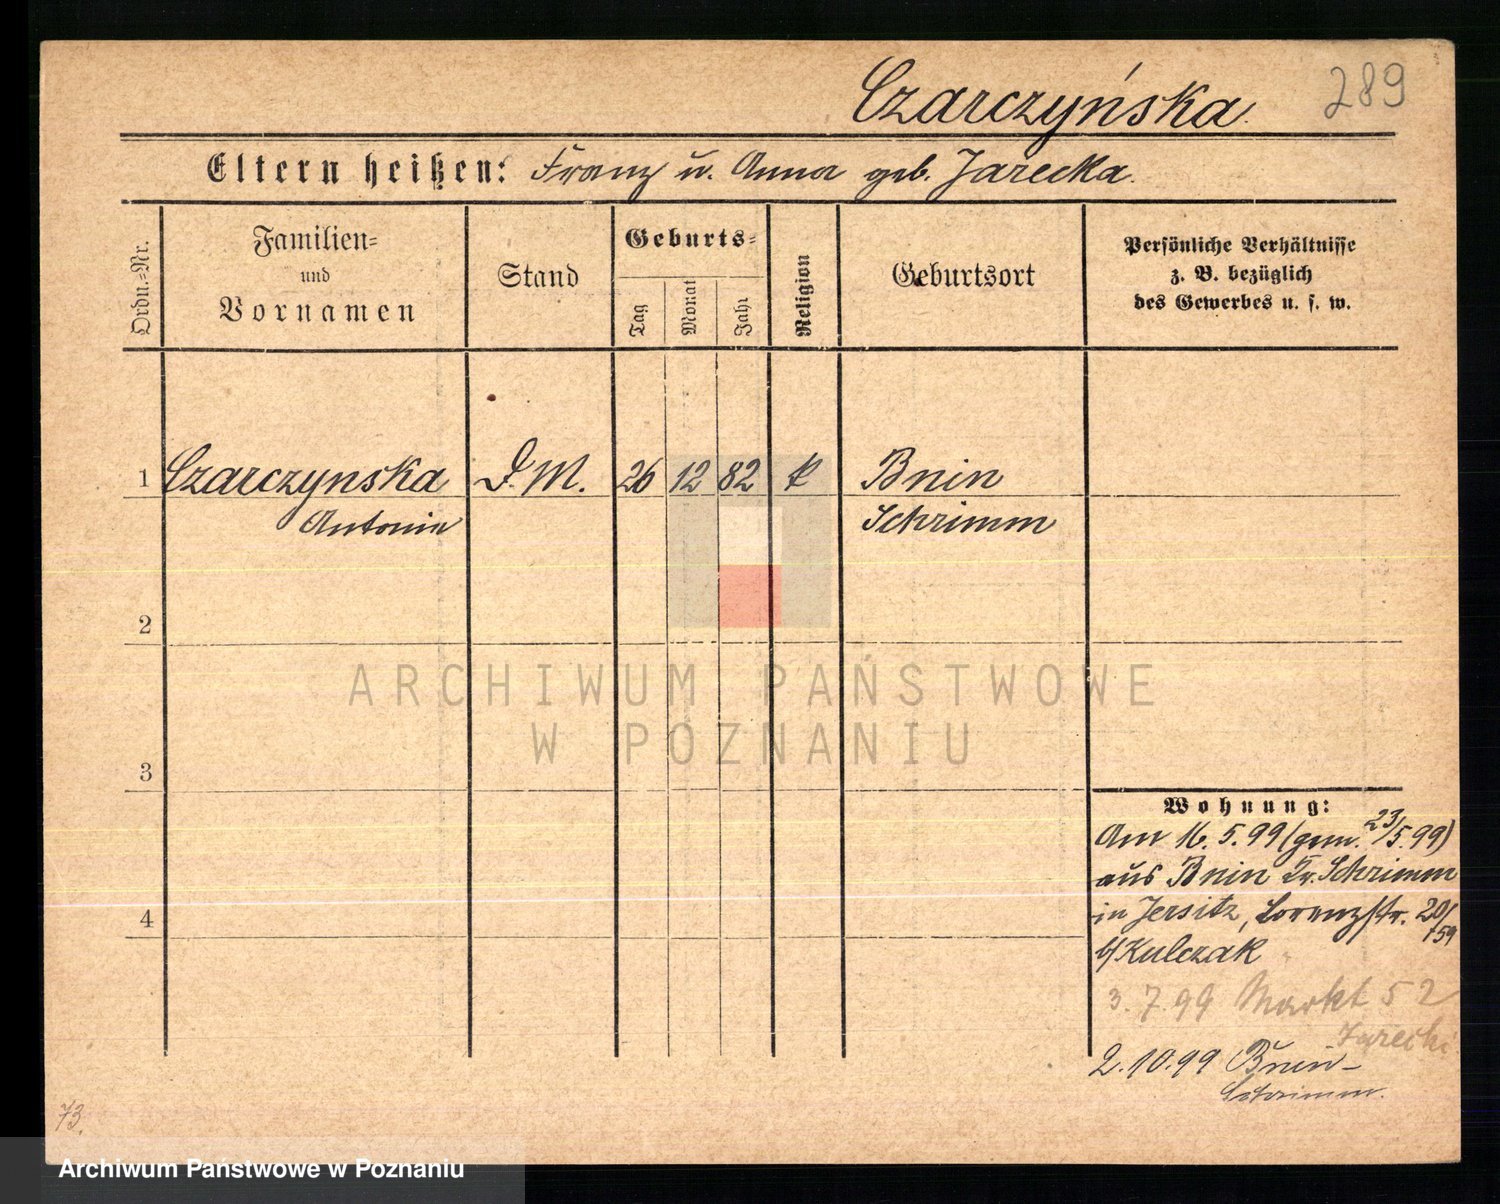 Czarczyńska
289
Eltern heißen: Franz u. Anna geb. Jarecka.
Ordn.-Nr.
Familien-
und
Vornamen
Stand
Geburts-
Tag
Monat
Jahr
Religion
Geburtsort
Persönliche Verhältnisse
z. B. bezüglich
des Gewerbes u. s. w.
1 Czarczynska D. M. 26 12 82 k Bnin
Antonie Schrimm
2
ARCHIWUM PAŃSTWOWE
W POZNANIU
3
Wohnung:
Am 16. 5. 99 (gem. 23/5. 99)
aus Bnin Kr. Schrimm
4
in Jersitz, Lorenzstr. 20/
159
b/Kulczak
3. 7. 99 Markt 52
Jarecki
2. 10. 99 Bnin-
Schrimm.
73.
Archiwum Państwowe w Poznaniu